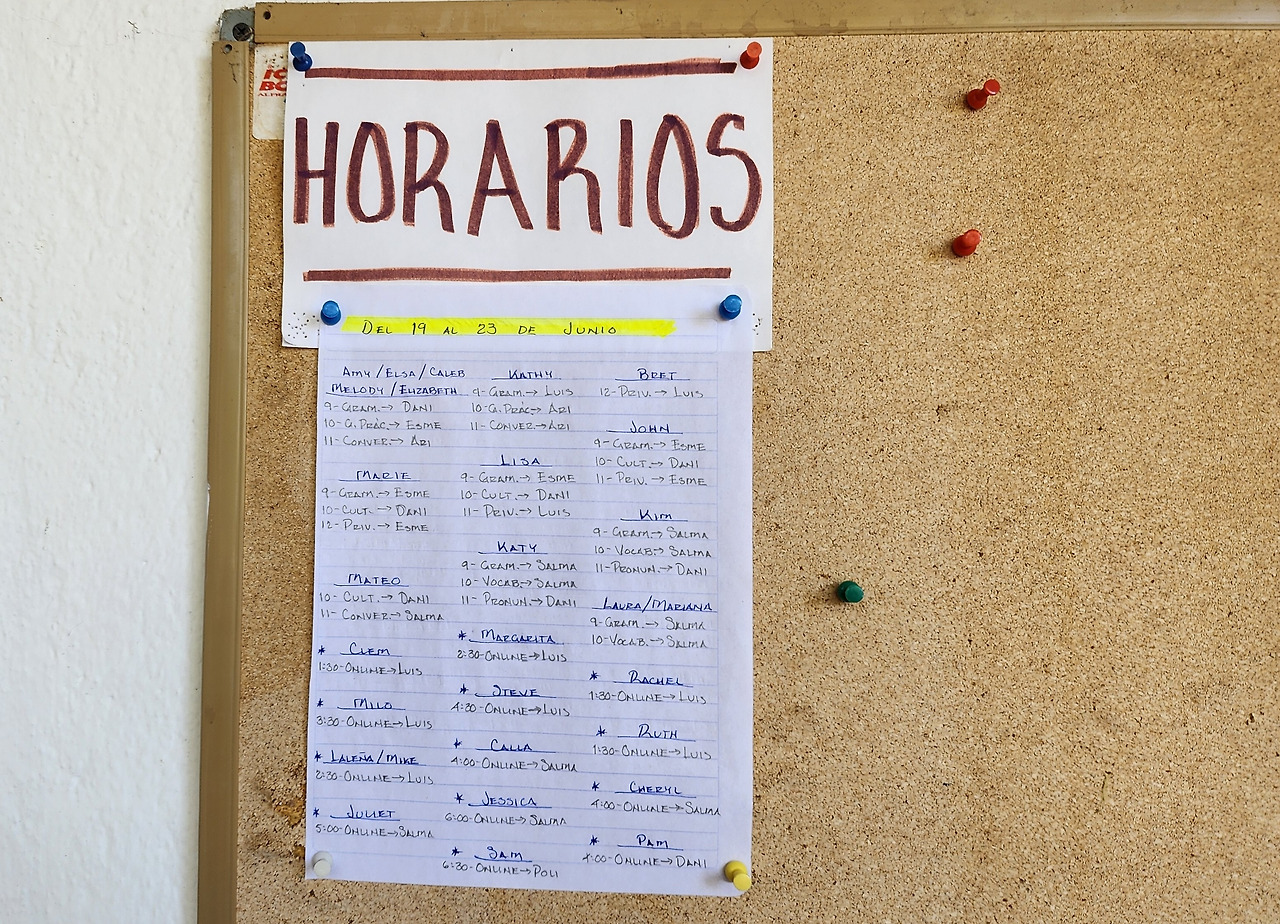 HORARIOS
DEL 19 AL 23 DE JUNIO
AMY/ELSA/CALEB
MELODY/ELIZABETH
9-GRAM.→ DANI
10-G.PRÁC.→ ESME
11-CONVER.→ ARI
MARIE
9-GRAM.→ ESME
10-CULT.→ DANI
12-PRIV.→ ESME
MATEO
10-CULT.→ DANI
11-CONVER→SALMA
* CLEM
1:30-ONLINE→LUIS
* MILO
3:30-ONLINE→LUIS
* LALEÑA/MIKE
2:30-ONLINE→LUIS
* JULIET
5:00-ONLINE→SALMA
KATHY
9-GRAM.→ LUIS
10-G.PRÁC→ ARI
11-CONVER→ARI
LISA
9-GRAM.→ ESME
10-CULT.→ DANI
11-PRIV.→ LUIS
KATY
9-GRAM.→ SALMA
10-VOCAB→SALMA
11-PRONUN.→DANI
* MARGARITA
2:30-ONLINE→LUIS
* STEVE
4:30-ONLINE→LUIS
* CALLA
4:00-ONLINE→SALMA
* JESSICA
6:00-ONLINE→SALMA
* SAM
6:30-ONLINE→POLI
BRET
12-PRIV.→ LUIS
JOHN
9-GRAM→ ESME
10-CULT.→ DANI
11-PRIV.→ ESME
KIM
9-GRAM→SALMA
10-VOCAB→ SALMA
11-PRONUN.→DANI
LAURA/MARIANA
9-GRAM.→ SALMA
10-VOCAB.→ SALMA
* RACHEL
1:30-ONLINE→LUIS
* RUTH
1:30-ONLINE→LUIS
* CHERYL
4:00-ONLINE→SALMA
* PAM
4:00-ONLINE→DANI